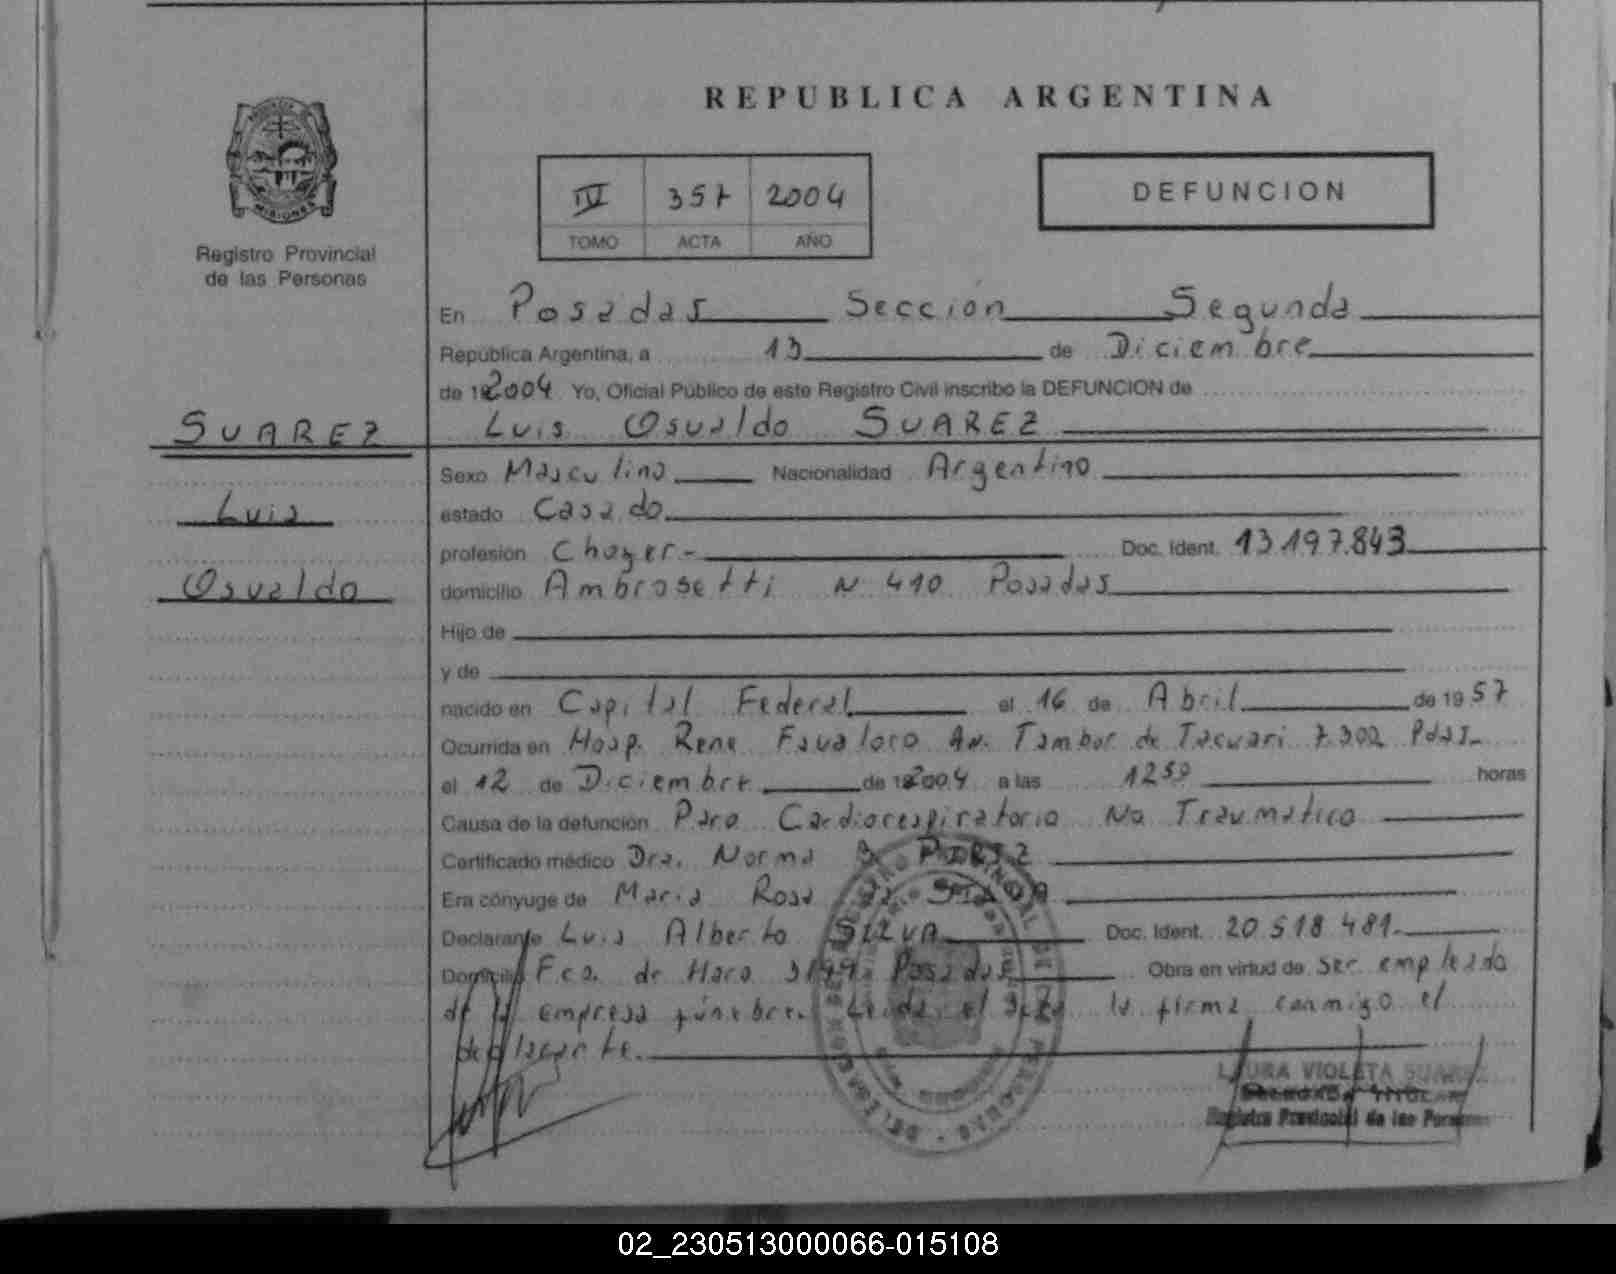 REPUBLICA ARGENTINA
PROVINCIA
MISIONES
Registro Provincial
de las Personas
IV 357 2004
TOMO ACTA AÑO
DEFUNCION
En Posadas Sección Segunda
República Argentina, a 13 de Diciembre
de 2004 Yo, Oficial Público de este Registro Civil inscribo la DEFUNCION de
Luis Osvaldo SUAREZ
SUAREZ
Luis
Osvaldo
Sexo Masculino Nacionalidad Argentino
estado Casado
profesión Chofer.- Doc. Ident. 13.197.843
domicilio Ambrosetti N 410 Posadas
Hijo de
y de
nacido en Capital Federal el 16 de Abril de 1957
Ocurrida en Hosp. Rene Favaloro Av. Tambor de Tacuari 7.302 Pdas.
el 12 de Diciembre de 2004 a las 1250 horas
Causa de la defunción Paro Cardiorespiratorio No Traumatico
Certificado médico Dra. Norma
Era cónyuge de Maria Rosa
Declarante Luis Alberto SILVA Doc. Ident. 20 518 481
Domicilio Fco. de Haro Posadas Obra en virtud de ser empleado
de la empresa fúnebre. Leida el acta la firma conmigo el
declarante.
LAURA VIOLETA SUAREZ
DELEGADA TITULAR
Registro Provincial de las Personas
02_230513000066-015108